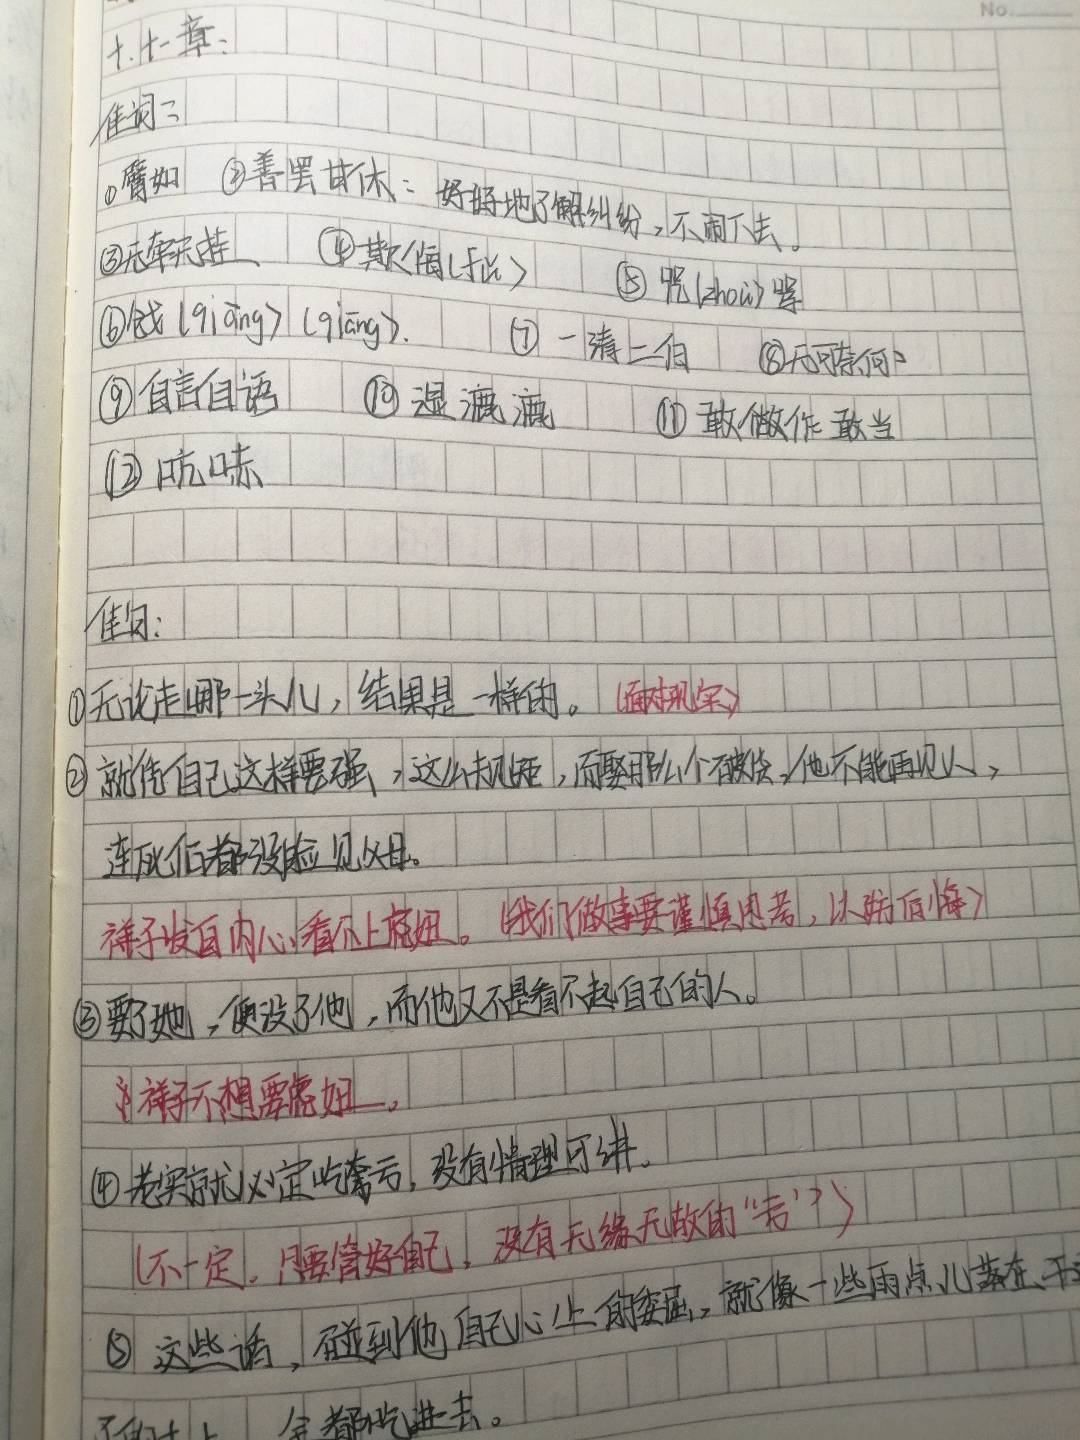 No.
十.十一章:
佳词:
①譬如 ②善罢甘休:好好地了解纠纷,不闹下去。
③无牵无挂 ④欺侮(ru) ⑤咒(zhòu)骂
⑥戗(qiāng)(qiāng). ⑦一清二白 ⑧无可奈何
⑨自言自语 ⑩湿漉漉 ⑪敢做作敢当
⑫吭哧
佳句:
①无论走哪一头儿,结果是一样的。(面对现实)
②就凭自己这样要强,这么规矩,而娶那么个破货,他不能再见人,
连死后都没脸见父母。
祥子发自内心看不上虎妞。(我们做事要谨慎思考,以防后悔)
③要了她,便没了他,而他又不是看不起自己的人。
祥子不想要虎妞。
④老实就必定吃亏,没有情理可讲。
(不一定。只要管好自己,没有无缘无故的“苦”?)
⑤这些话,碰到他自己心上的委屈,就像一些雨点儿落在干
都吃进去。